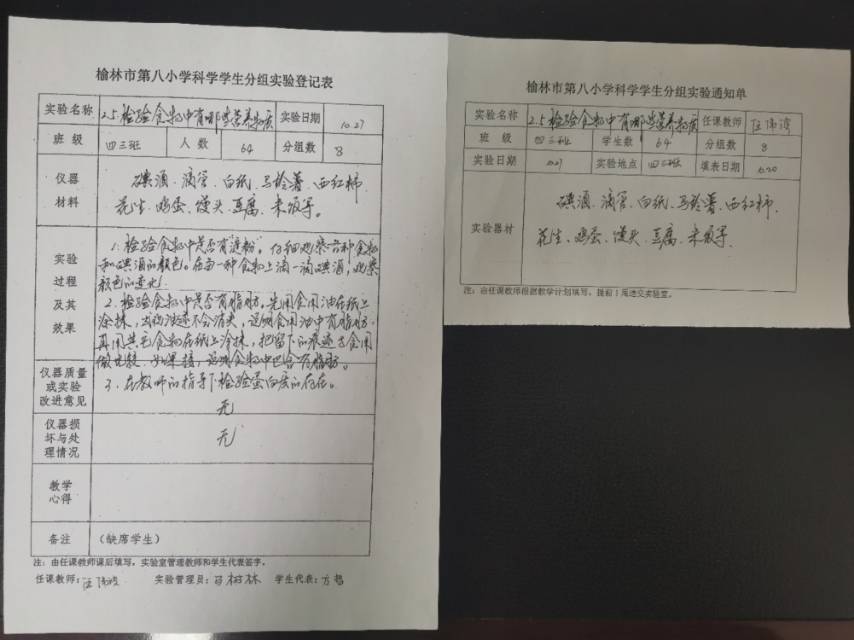 榆林市第八小学科学学生分组实验登记表
实验名称 2.5.检验食物中有哪些营养物质 实验日期 10.27
班级 四三班 人数 64 分组数 8
仪器材料
碘酒、滴管、白纸、马铃薯、西红柿、
花生、鸡蛋、馒头、豆腐、米饭等。
实验过程及其效果
1.检验食物中是否有淀粉。仔细观察各种食物
和碘酒的颜色。在每一种食物上滴一滴碘酒,观察
颜色的变化.
2.检验食物中是否有脂肪.先用食用油在纸上
涂抹,出的油迹不会消失,说明食用油中有脂肪.
再用其它食物在纸上涂抹,把留下的痕迹与食用
做比较.如果接,说明食物中包含有脂肪。
3.在教师的指导下检验蛋白质的存在。
仪器质量或实验改进意见 无
仪器损坏与处理情况 无
教学心得
备注 (缺席学生)
注:由任课教师课后填写,实验室管理教师和学生代表签字。
任课教师: 实验管理员: 树林 学生代表:方
榆林市第八小学科学学生分组实验通知单
实验名称 2.5.检验食物中有哪些营养物质 任课教师
班级 四三班 学生数 64 分组数 8
实验日期 实验地点 四三班 填表日期
实验器材
碘酒、滴管、白纸、马铃薯、西红柿、
花生、鸡蛋、馒头、豆腐、米饭等
注:由任课教师根据教学计划填写,提前1周送交实验室。